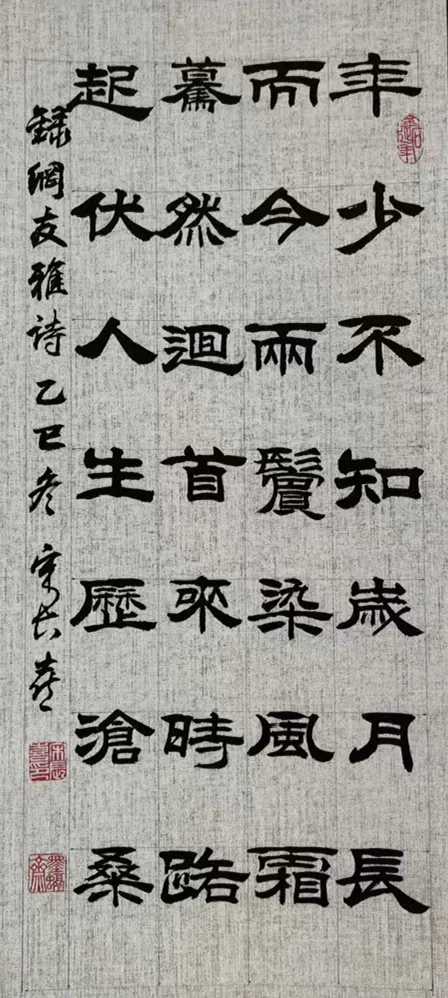 年少不知歲月長
而今兩鬢染風霜
驀然迴首來時路
起伏人生歷滄桑
錄網友雅詩乙巳冬宋長喜